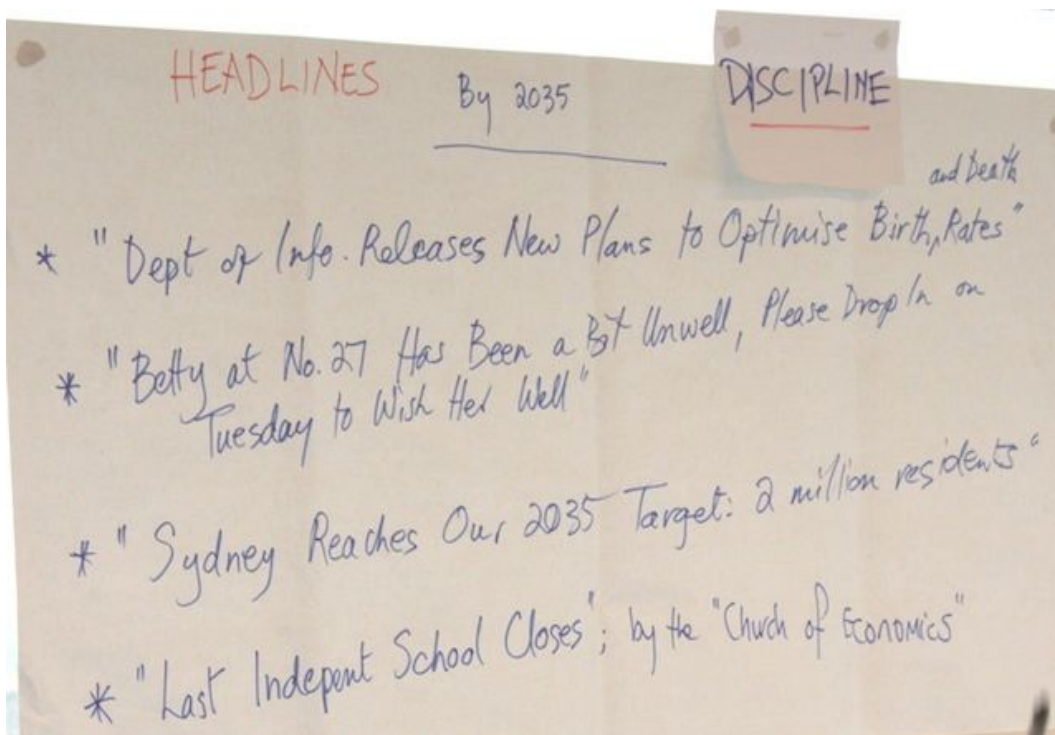 HEADLINES By 2035 DISCIPLINE
and Death
* "Dept of Info. Releases New Plans to Optimise Birth, Rates"
* "Betty at No. 27 Has Been a Bit Unwell, Please Drop In on
Tuesday to Wish Her Well"
* "Sydney Reaches Our 2035 Target: 2 million residents"
* "Last Indepent School Closes"; by the "Church of Economics"